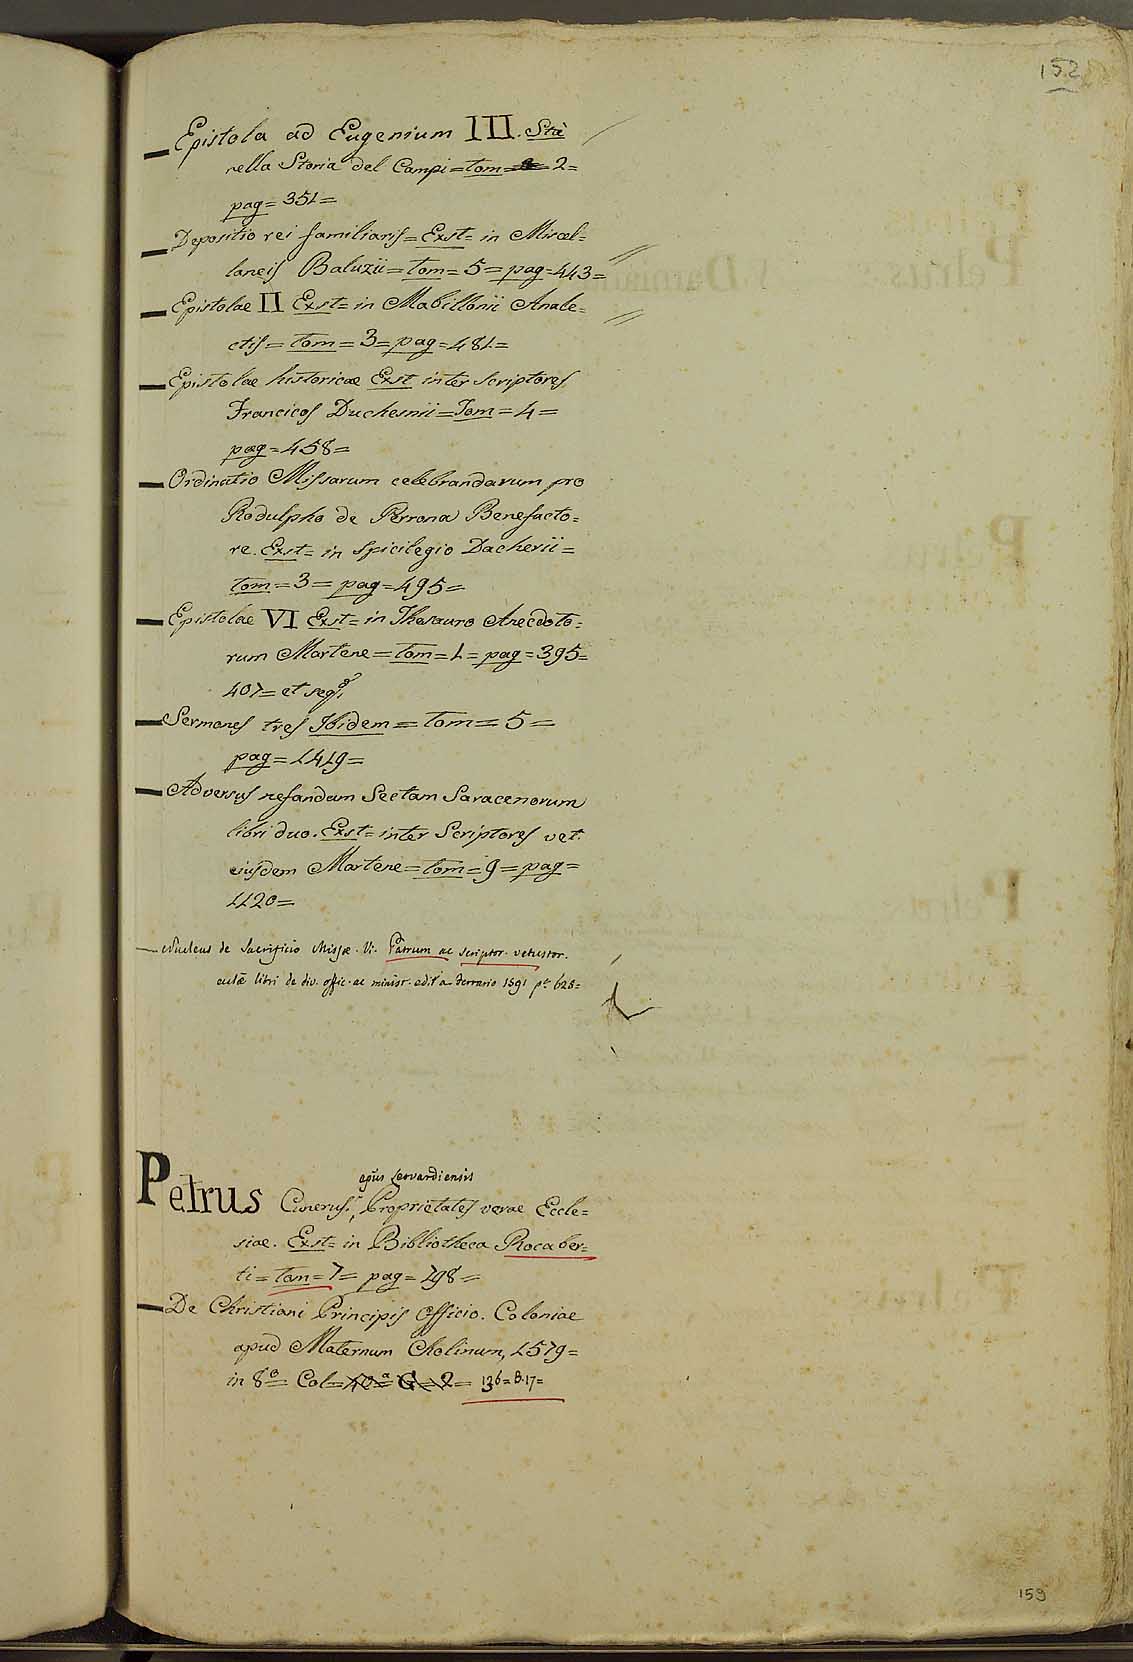 152
Epistola ad Eugenium III. Stà
nella Storia del Campi = tom = 2 =
pag = 351 =
Depositio rei familiaris = Exst = in Miscel=
laneis Baluzii = tom = 5 = pag = 443 =
Epistolae II Exst = in Mabillonii Anale=
ctis = tom = 3 = pag = 481 =
Epistolae historicae Exst inter scriptores
Francicos Duchesnii = Tom = 4 =
pag = 458 =
Ordinatio Missarum celebrandarum pro
Rodulpho de Perrona Benefacto=
re. Exst = in Spicilegio Dacherii =
tom = 3 = pag = 495 =
Epistolae VI Exst = in Thesauro Anecdoto=
rum Martene = tom = 1 = pag = 395 =
407 = et seqq.
Sermones tres Ibidem = tom = 5 =
pag = 1419 =
Adversus nefandam Sectam Saracenorum
libri duo. Exst = inter Scriptores vet.
eiusdem Martene = tom = 9 = pag =
1120 =
Nucleus de Sacrificio Missæ. V. Patrum ac scriptor. vetustor.
libri de div. offic. ac minist. edit. a Ferrario 1591 p. 626 =
epūs Leovardiensis
Petrus Cunerus, Proprietates verae Eccle=
siae. Exst = in Bibliotheca Rocaber=
ti = tom = 7 = pag = 798 =
De Christiani Principis Officio. Coloniae
apud Maternum Cholinum, 1579 =
in 8º = Col = 40ª = G = 2 = 136 = B. 17 =
159